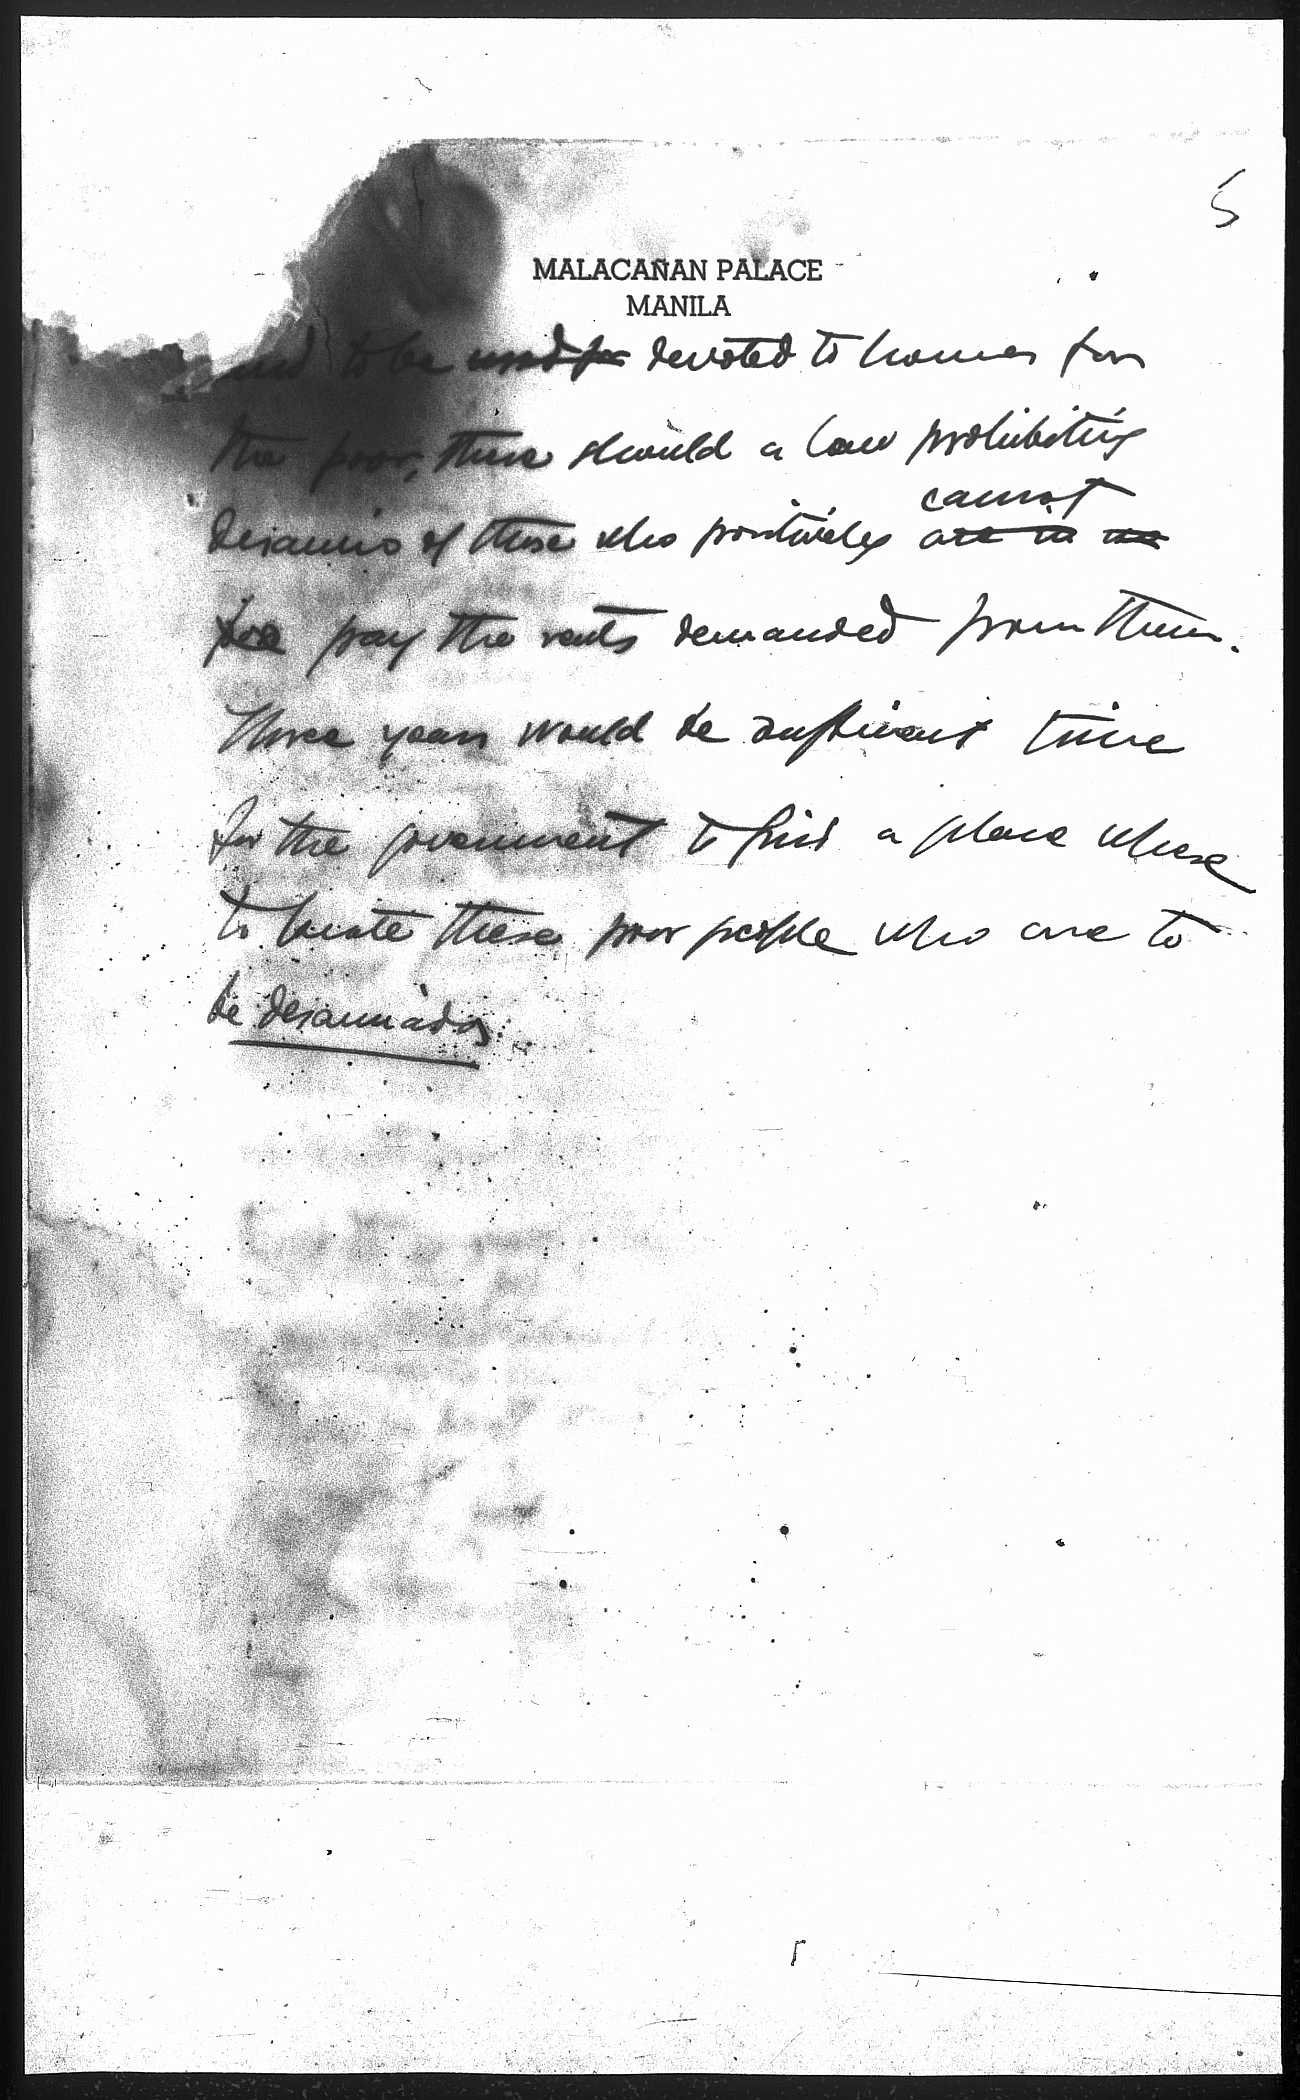 5
MALACAÑAN PALACE
MANILA
and to be used for devoted to homes for
the poor, there should a law prohibiting
desaucio of those who positively cannot are in
pay the rents demanded from them.
Three years would be sufficient time
for the government to find a place where
to locate these poor people who are to
be desaumados